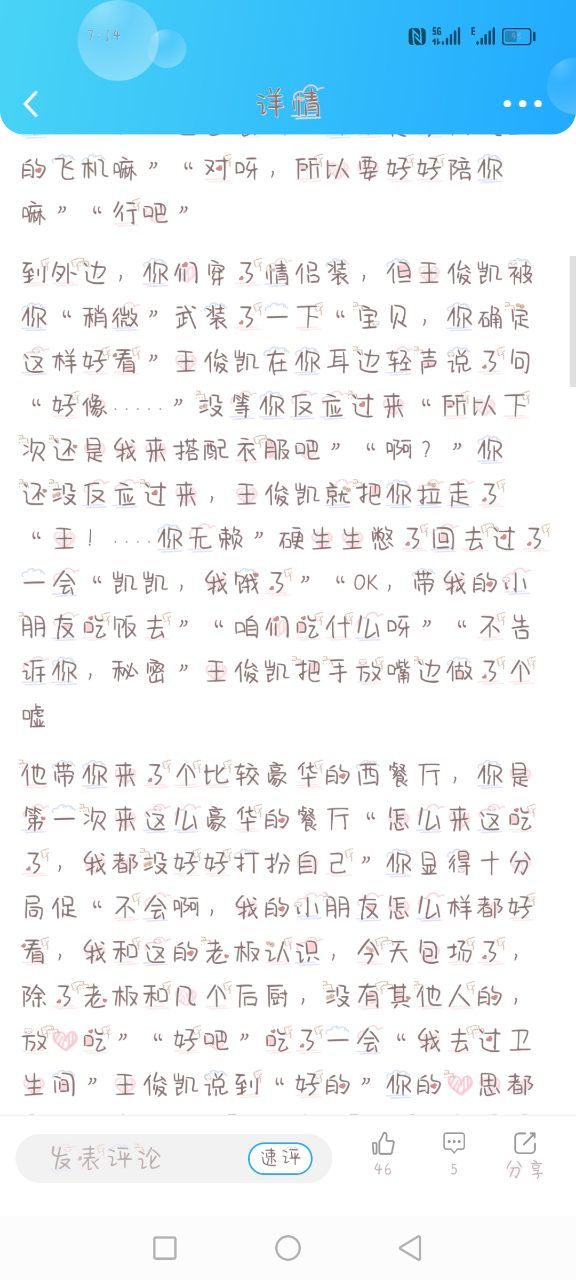 7:14
5G
E
详情
的飞机嘛”“对呀，所以要好好陪你
嘛”“行吧”
到外边，你们穿了情侣装，但王俊凯被
你“稍微”武装了一下“宝贝，你确定
这样好看”王俊凯在你耳边轻声说了句
“好像·····”没等你反应过来“所以下
次还是我来搭配衣服吧”“啊？”你
还没反应过来，王俊凯就把你拉走了
“王！····你无赖”硬生生憋了回去过了
一会“凯凯，我饿了”“OK，带我的小
朋友吃饭去”“咱们吃什么呀”“不告
诉你，秘密”王俊凯把手放嘴边做了个
嘘
他带你来了个比较豪华的西餐厅，你是
第一次来这么豪华的餐厅“怎么来这吃
了，我都没好好打扮自己”你显得十分
局促“不会啊，我的小朋友怎么样都好
看，我和这的老板认识，今天包场了，
除了老板和几个后厨，没有其他人的，
放❤吃”“好吧”吃了一会“我去过卫
生间”王俊凯说到“好的”你的❤思都
发表评论
速评
46
5
分享